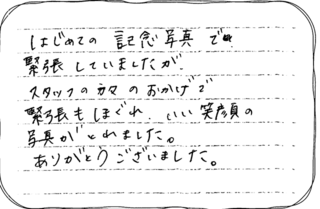 はじめての 記念写真 で
緊張 していましたが
スタッフの方々のおかげで
緊張もほぐれ、いい笑顔の
写真がとれました。
ありがとうございました。